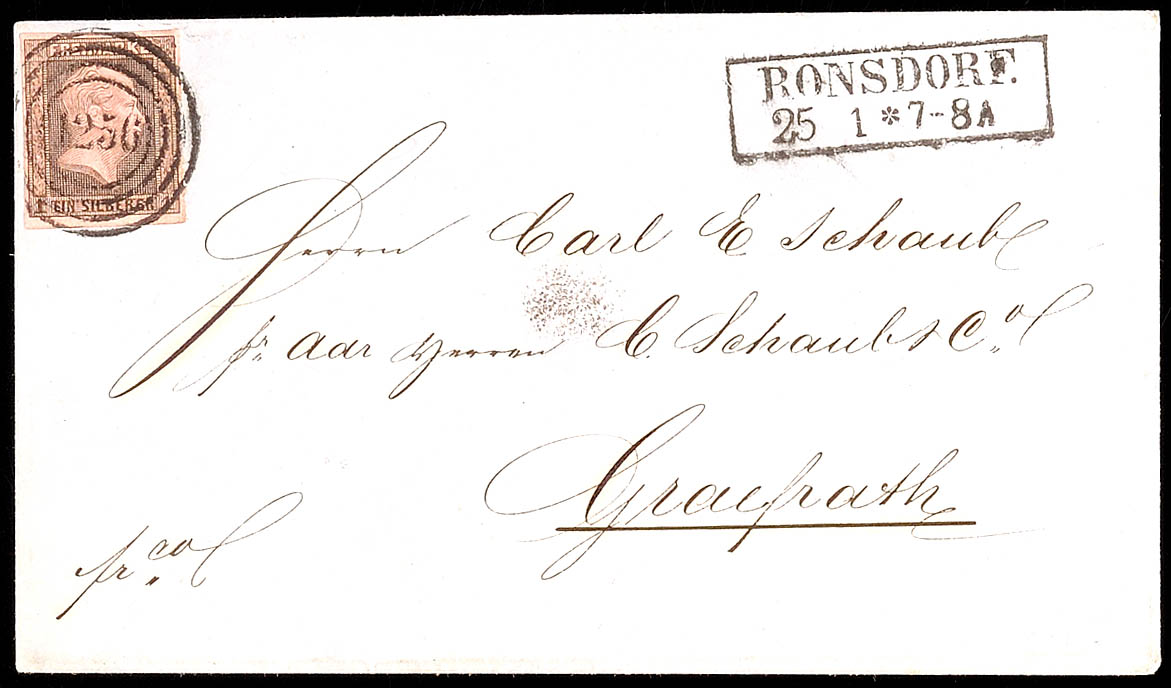 1 EIN SILBERGR. 1
RONSDORF.
25 1 * 7-8 A
Herrn Carl E Schaub
pr adr Herren C. Schaub & Co
Graefrath
frco